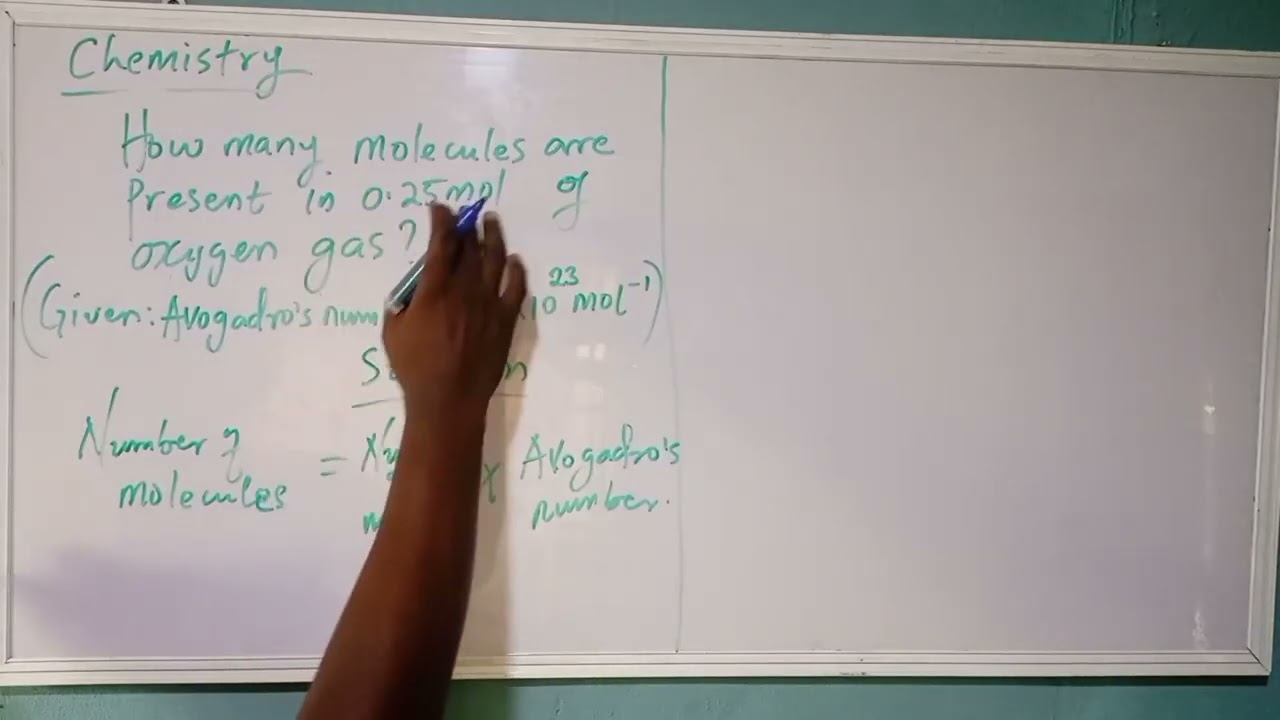 Chemistry
How many molecules are
Present in 0.25mol of
oxygen gas?
(Given: Avogadro's 10²³ mol⁻¹)
Number of
molecules
= × Avogadro's
number.